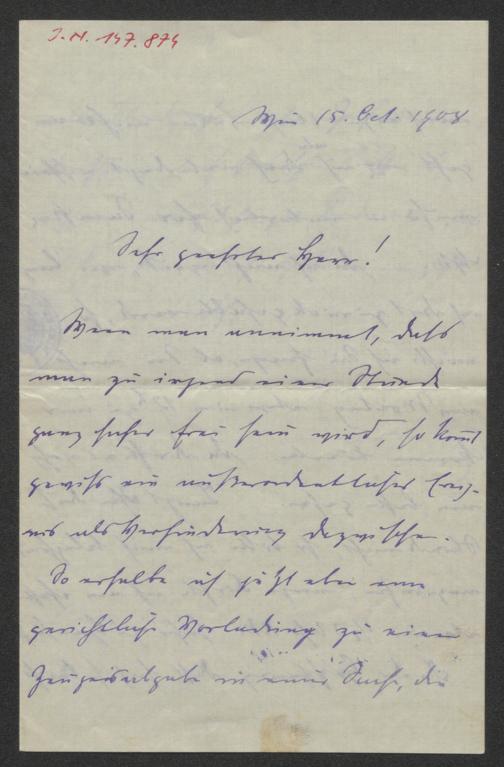 J.N. 147.874
Wien 15. Oct. 1908
Sehr geehrter Herr!
Wenn man annimmt, daß
man zu irgend einer Stunde
ganz sicher frei sein wird, so kommt
gewiß ein außerordentliches Ereig-
nis als Verhinderung dazwischen.
So erhalte ich jetzt eben eine
gerichtliche Vorladung zu einer
Zeugenabgabe in einer Sache, die